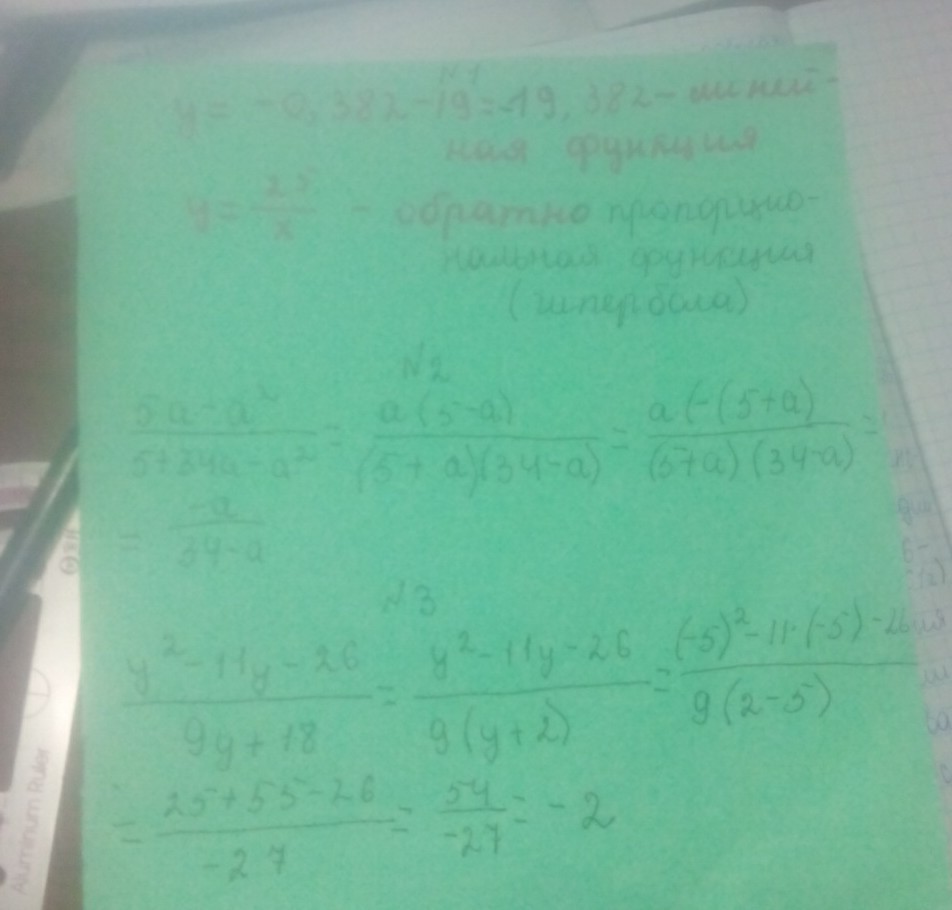 N1
y = -0,382-19=-19,382- линей-
ная функция
y = 25/x - обратно пропорцио-
нальная функция
(гипербола)
N2
5a-a²/5+34a-a² = a(5-a)/(5+a)(34-a) = a(-(5+a)/(5+a)(34-a) =
= -a/34-a
N3
y²-11y-26/9y+18 = y²-11y-26/9(y+2) = (-5)²-11·(-5)-26/9(2-5)
= 25+55-26/-27 = 54/-27 = -2
Aluminum Ruler